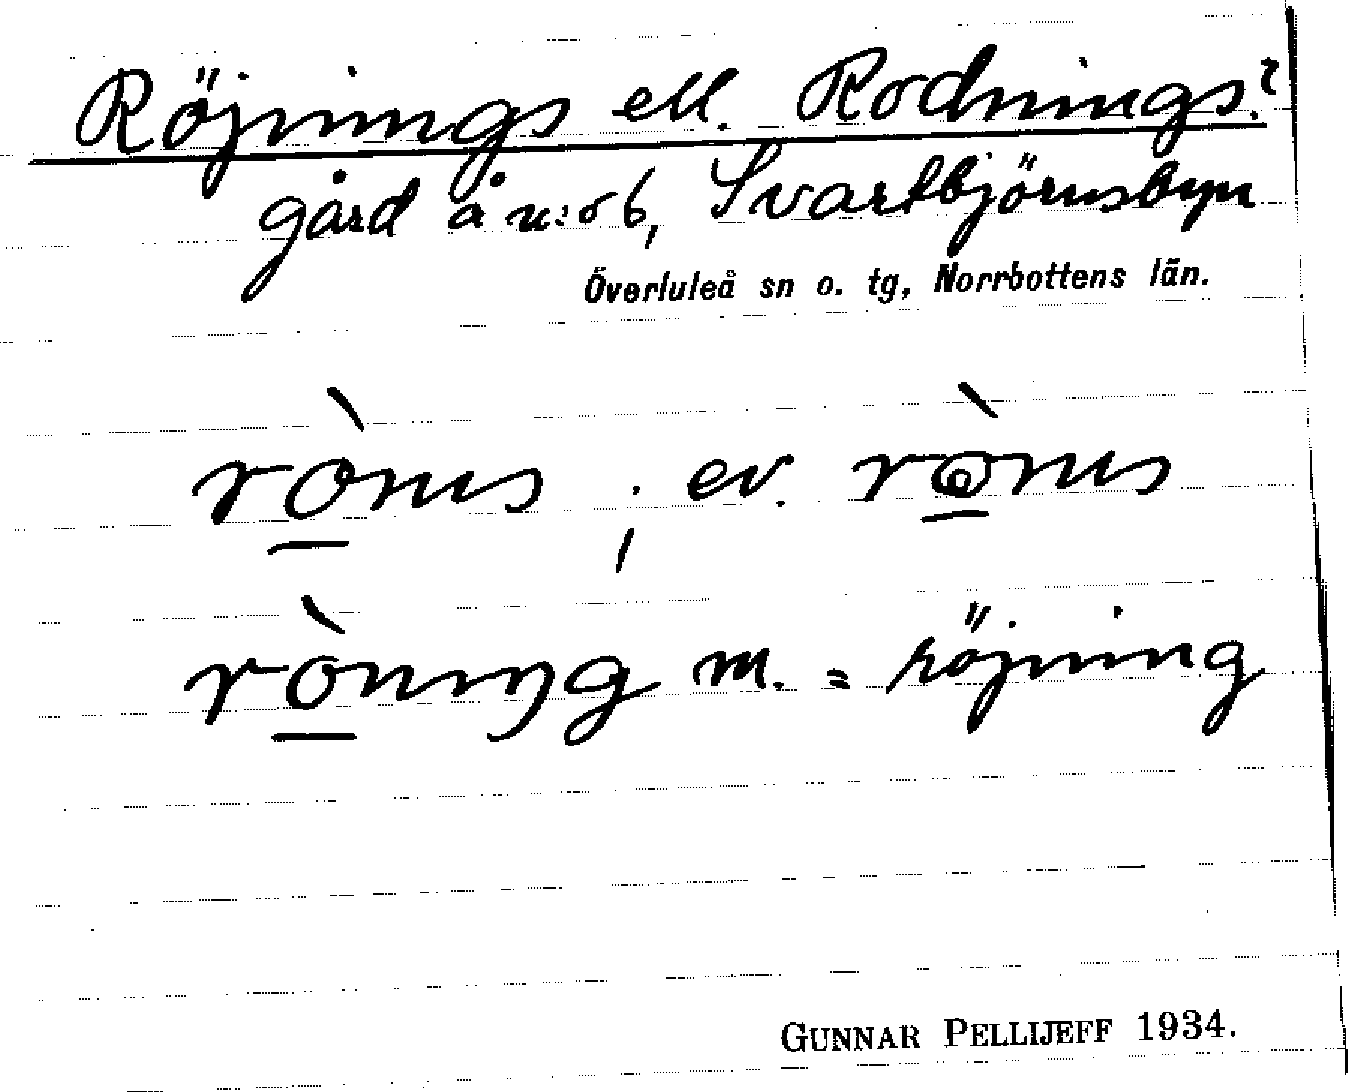 Röjnings ell. Rodnings.?
gård å n:o 6, Svartbjörnsbyn
Överluleå sn o. tg, Norrbottens län.
ròns ; ev. ròns
rònıŋg m. = röjning
GUNNAR PELLIJEFF 1934.